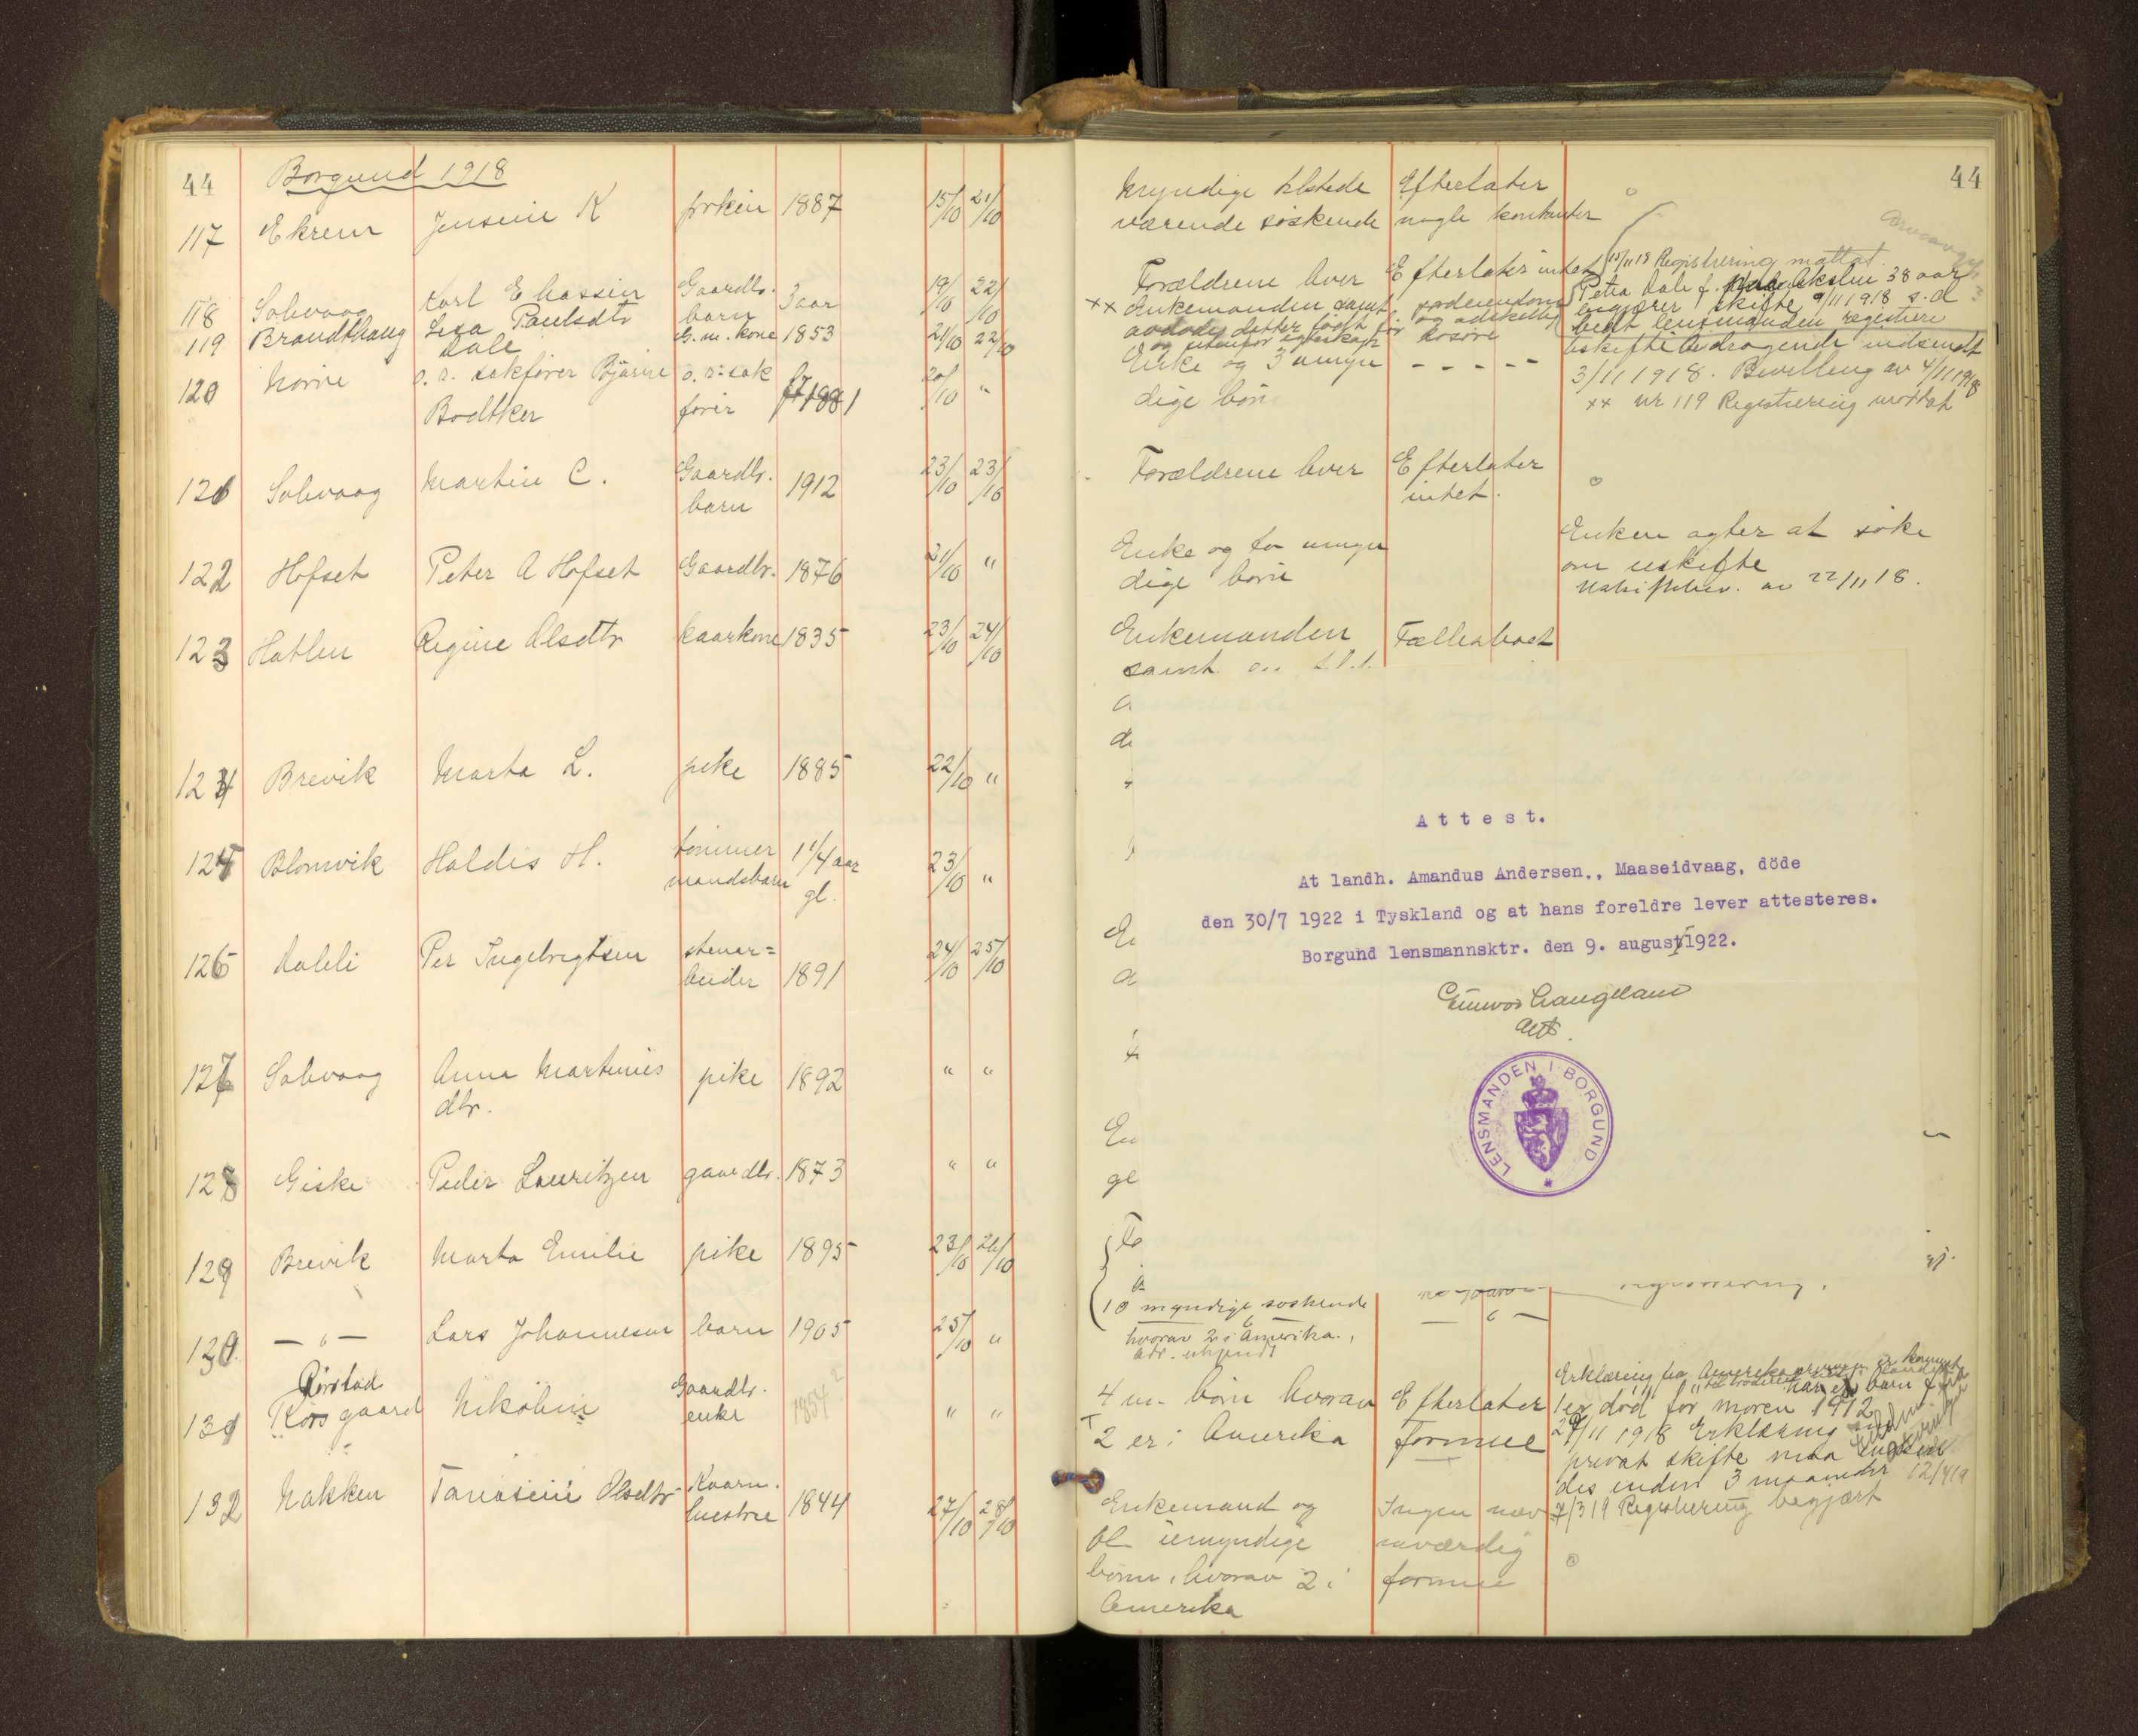 44
Borgund 1918
117 Ekrem Jensine K frøken 1887 15/10 21/10
118 Solevaag Karl Eliassen Gaardbr. barn 3 aar 19/10 22/10
119 Brandthaug Lisa Paulsdtr Dale G.m. kone 1853 21/10 22/10
120 Nørve o. r. sakfører Bjarne Bødtker o. r. sak fører 1881 20/10 "
121 Solevaag Martin C. Gaardbr. barn 1912 23/10 23/10
122 Hofset Peter A Hofset Gaardbr. 1876 21/10 "
123 Hatlen Regine Olsdtr kaarkone 1835 23/10 24/10
124 Brevik Marta L. pike 1885 22/10 "
125 Blomvik Haldis H. tømmer mandsbarn 1 1/4 aar gl. 23/10 "
126 Per Ingebrigtsen stenar= beider 1891 24/10 25/10
127 Solevaag Anna Martinus dtr. pike 1892 " "
128 Giske Peder Lauritzen gaardbr. 1873 " "
129 Brevik Marta Emilie pike 1895 23/10 26/10
130 — " — Lars Johannesen barn 1905 25/10 "
131 Rørstad Korsgaard Nikoline Gaardbr. enke 1854 " "
132 Nakken Olsdtr Kaarm. hustru 1844 27/10 28/10
44
Myndige tilstede Efterlater
værende søskende nogle kontanter
Forældrene lever Efterlater intet 15/11 18 Registrering mottat.
xx Enkemanden samt Petra Dale f. 38 aar
datter født før og særskilt begjærer skifte 9/11 1918 s. d
og utenfor egteskap løsøre bedt lensmanden registrere
Enke og 3 umyn - - - - - uskiftebedragende indsendt
dige børn 3/11 1918. Bevilling av 4/11 1918
xx nr 119 Registrering mottat
Forældrene lever Efterlater
intet.
Enke og to umyn Enken agter at søke
dige børn om uskifte
av 22/11 18.
Enkemanden Fællesboet
samt
Attest.
At landh. Amandus Andersen., Maaseidvaag, döde
den 30/7 1922 i Tyskland og at hans foreldre lever attesteres.
Borgund lensmannsktr. den 9. august 1922.
Gunvor Haugeland
LENSMANDEN I BORGUND
En
ge
10 myndige søskende — " —
hvorav 2 i Amerika.,
adr. ukjendt
Erklæring fra
4 m. børn hvorav Efterlater 1 er død før moren 1912 har barn
2 er i Amerika formue 29/11 1918 Erklæring om
privat skifte maa indsen
des inden 3 maaneder 12/4 19
Enkemand og Ingen næv 7/3 19 Registrering begjært
umyndige neværdig
børn, hvorav 2 i formue
Amerika